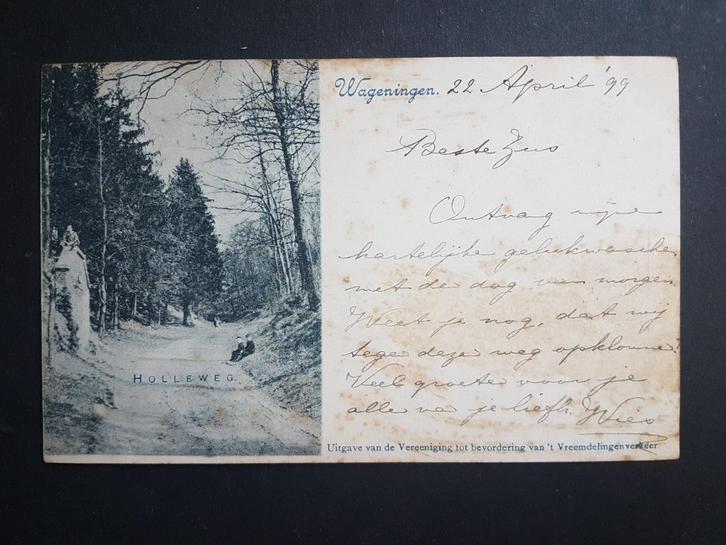 Wageningen. 22 April '99
Beste Zus
Ontvang mijne
hartelijke gelukwenschen
met de dag van morgen.
Weet je nog, dat wij
tegen deze weg opklommen?
Veel groeten voor je
alle van je liefh. Wies
HOLLEWEG.
Uitgave van de Vereeniging tot bevordering van 't Vreemdelingenverkeer